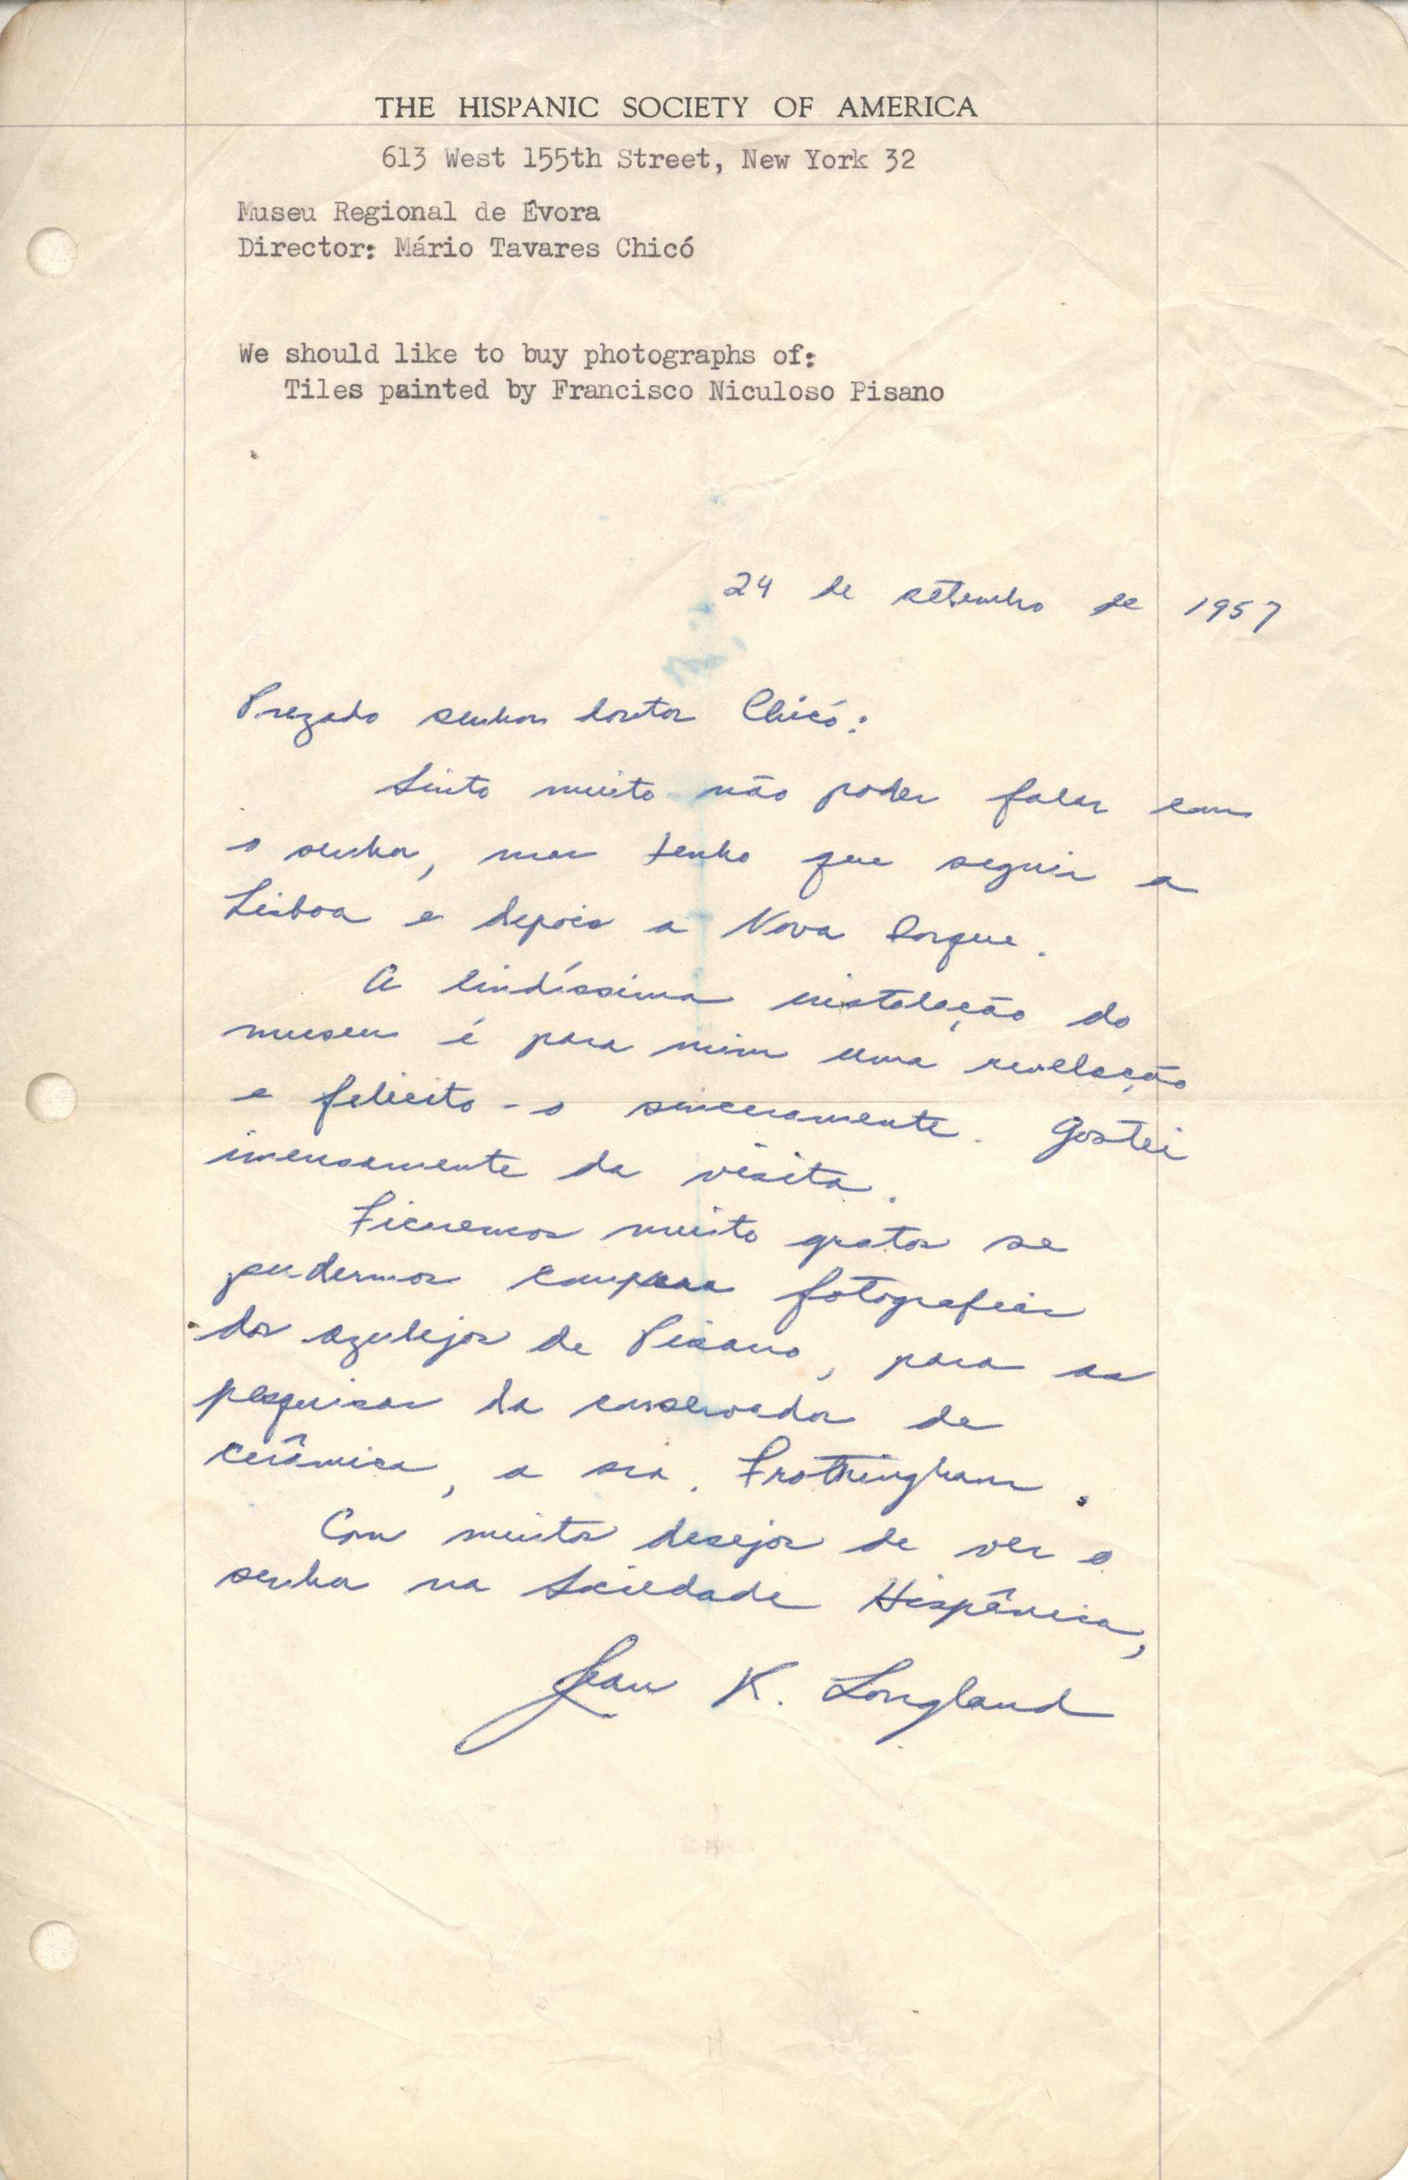 THE HISPANIC SOCIETY OF AMERICA
613 West 155th Street, New York 32
Museu Regional de Évora
Director: Mário Tavares Chicó
We should like to buy photographs of:
Tiles painted by Francisco Niculoso Pisano
24 de setembro de 1957
Prezado senhor doutor Chicó:
Sinto muito não poder falar com
o senhor, mas tenho que seguir a
Lisboa e depois a Nova Iorque.
A lindíssima instalação do
museu é para mim uma revelação
e felicito-o sinceramente. Gostei
imensamente da visita.
Ficaremos muito gratos se
pudermos comprar fotografias
dos azulejos de Pisano, para as
pesquisas da conservador de
cerâmica, a sra. Frothingham.
Com muitos desejos de ver o
senhor na Sociedade Hispânica,
Jean K. Longland